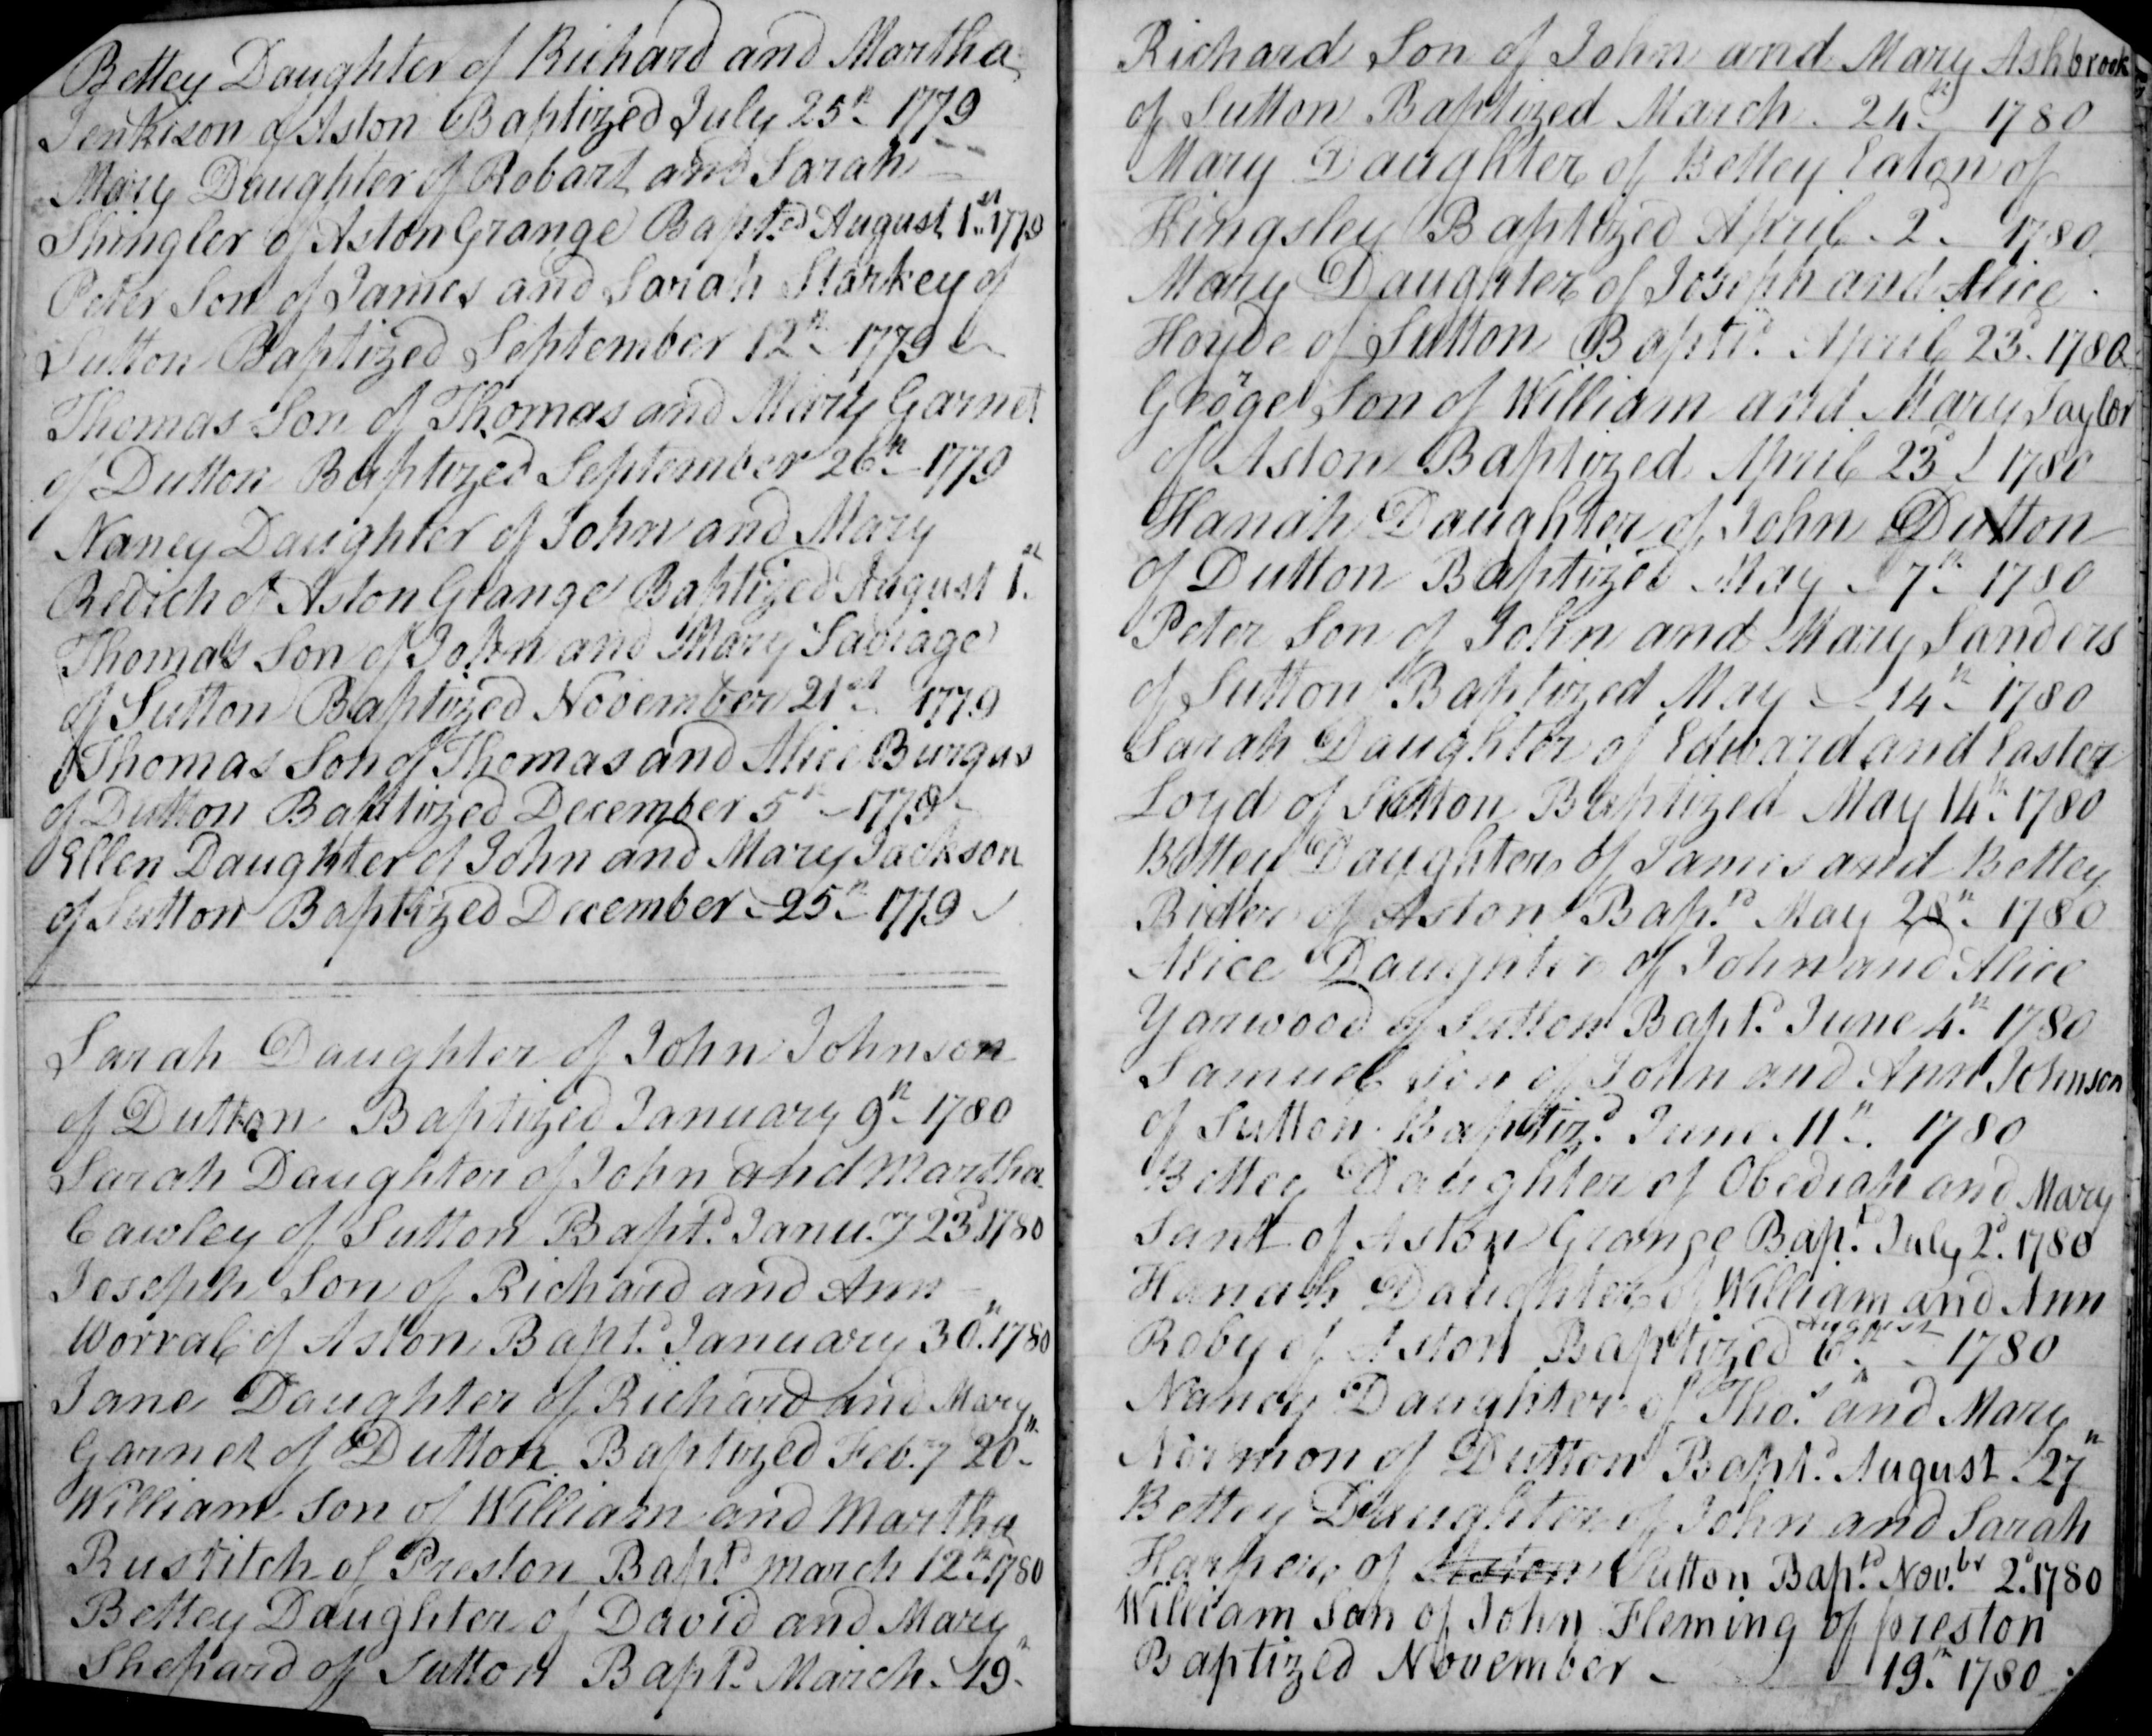 Bettey Daughter of Richard and Martha
Jenkison of Aston Baptized July 25th 1779
Mary Daughter of Robart and Sarah
Shingler of Aston Grange Bapted August 1st 1779
Peter Son of James and Sarah Starkey of
Sutton Baptized September 12th 1779
Thomas Son of Thomas and Mary Garnet
of Dutton Baptized September 26th 1779
Nancy Daughter of John and Mary
Redich of Aston Grange Baptized August 1st
Thomas Son of John and Mary Saviage
of Sutton Baptized November 21st 1779
Thomas Son of Thomas and Alice Burgus
of Dutton Baptized December 5th 1779
Ellen Daughter of John and Mary Jackson
of Sutton Baptized December 25th 1779
Sarah Daughter of John Johnson
of Dutton Baptized January 9th 1780
Sarah Daughter of John and Martha
Cawley of Sutton Baptd Janury 23d 1780
Joseph Son of Richard and Ann
Worral of Aston Baptd January 30th 1780
Jane Daughter of Richard and Mary
Garnet of Dutton Baptized Feby 20th
William Son of William and Martha
Rustitch of Preston Baptd March 12th 1780
Bettey Daughter of David and Mary
Shepard of Sutton Baptd March 19th
Richard Son of John and Mary Ashbrook
of Sutton Baptized March 24th 1780
Mary Daughter of Bettey Eaton of
Kingsley Baptized April 2d 1780
Mary Daughter of Joseph and Alice
Hoyde of Sutton Baptid April 23d 1780
Geoge Son of William and Mary Taylor
of Aston Baptized April 23d 1780
Hanah Daughter of John Dutton
of Dutton Baptized May 7th 1780
Peter Son of John and Mary Sanders
of Sutton Baptized May 14th 1780
Sarah Daughter of Edward and Easter
Loyd of Sutton Baptized May 14th 1780
Bettey Daughter of James and Bettey
Rider of Aston Bapd May 28th 1780
Alice Daughter of John and Alice
Yarwood of Sutton Baptd June 4th 1780
Samuel Son of John and Ann Johnson
of Sutton Baptizd June 11th 1780
Bettey Daughter of Obediah and Mary
Sant of Aston Grange Baptd July 2d 1780
Hanah Daughter of William and Ann
Roby of Aston Baptized August 6th 1780
Nancy Daughter of Thos and Mary
Normon of Dutton Baptd August 27th
Bettey Daughter of John and Sarah
Harper of Aston Sutton Baptd Novbr 2d 1780
William Son of John Fleming of preston
Baptized November 19th 1780